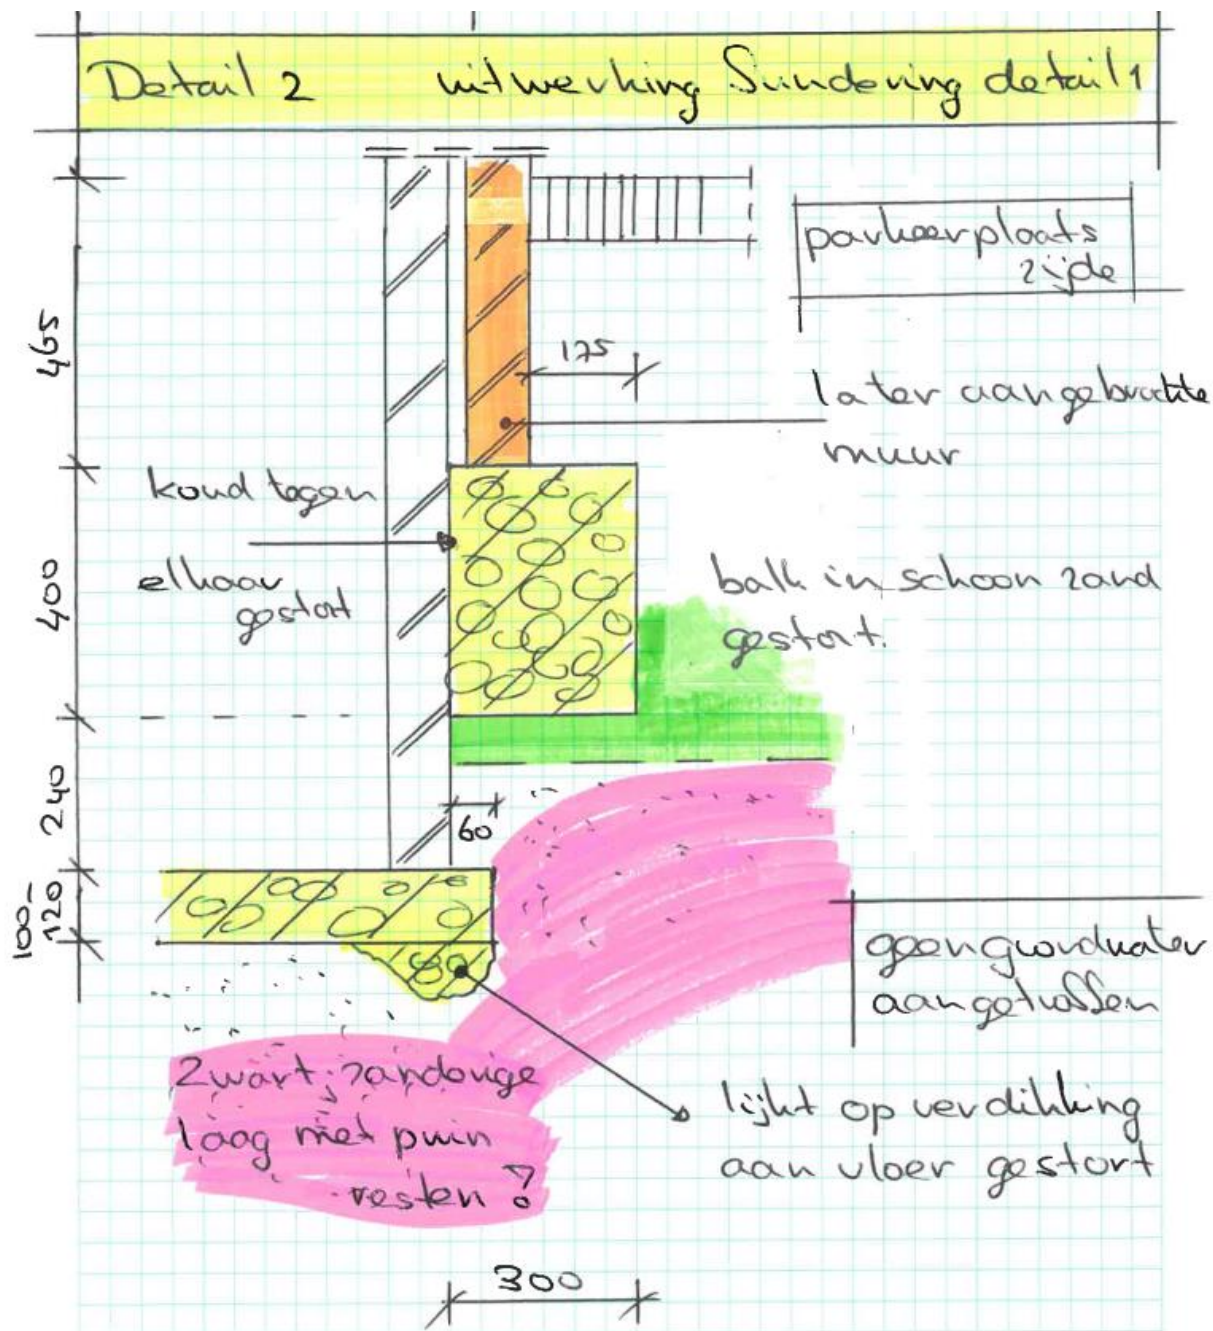 Detail 2 uitwerking Fundering detail 1
parkeerplaats
zijde
465
175
later aangebrachte
muur
koud tegen
elkaar
gestort
400
balk in schoon zand
gestort.
240
60
100-
120
geen grondwater
aangetroffen
zwart; zandorige
laag met puin
resten ?
lijkt op verdikking
aan vloer gestort
300